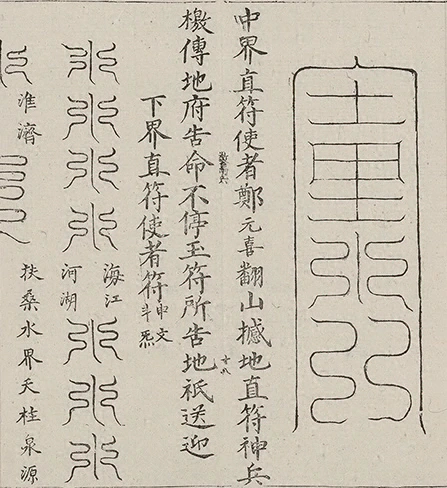 中界直符使者鄭元喜翻山撼地直符神兵
檄傳地府告命不停玉符所告地祇送迎
十八
下界直符使者符申文斗炁
海江
河湖
扶桑水界天柱泉源
淮濟